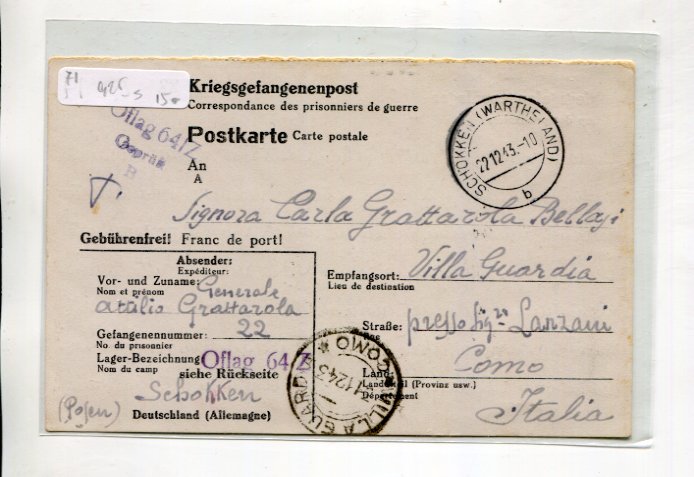 71 425 s 15
Kriegsgefangenenpost
Correspondance des prisonniers de guerre
Oflag 64/Z
Geprüft
B
Postkarte Carte postale
SCHOKKEN (WARTHELAND)
22.12.43.-10
b
An
A
Signora Carla Grattarola Bellasi
Gebührenfrei! Franc de port!
Absender:
Expéditeur:
Vor- und Zuname: Generale
Nom et prénom
Attilio Grattarola
Gefangenennummer: 22
No. du prisonnier
Lager-Bezeichnung: Oflag 64/Z
Nom du camp
siehe Rückseite
Schokken
(Posen)
Deutschland (Allemagne)
Empfangsort: Villa Guardia
Lieu de destination
Straße: presso Sig.ra Lanzani
Rue
Como
Land:
Landesteil (Provinz usw.)
Département
Italia
VILLA GUARDIA * COMO *